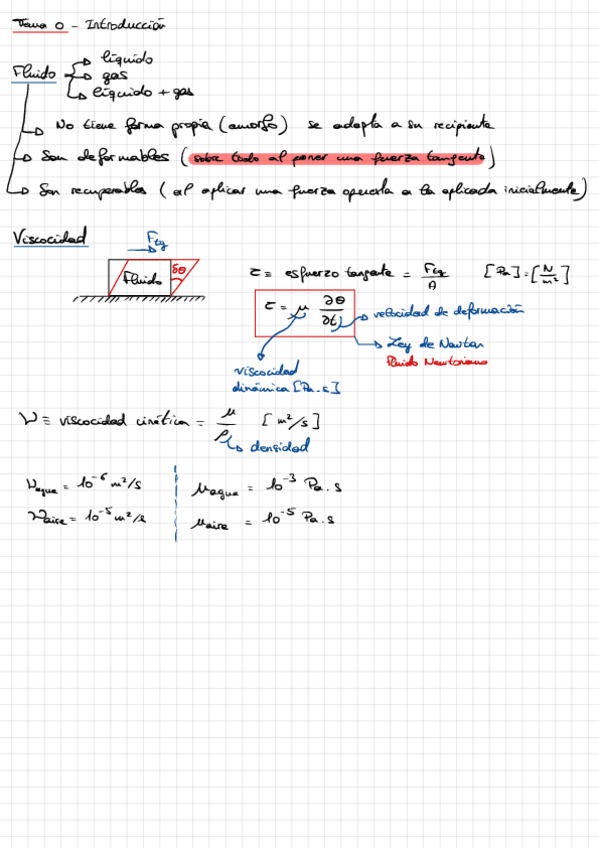 Tema 0 - Introducción
Fluido
líquido
gas
líquido + gas
No tiene forma propia (amorfo) se adapta a su recipiente
Son deformables (sobre todo al poner una fuerza tangente)
Son recuperables (al aplicar una fuerza opuesta a la aplicada inicialmente)
Viscocidad
Ftg
δθ
Fluido
τ ≡ esfuerzo tangente = Ftg/A [Pa] = [N/m²]
τ = μ ∂θ/∂t
velocidad de deformación
Ley de Newton
Fluido Newtoniano
viscocidad
dinámica [Pa.s]
ν ≡ viscocidad cinética = μ/ρ [m²/s]
densidad
νagua = 10⁻⁶ m²/s
μagua = 10⁻³ Pa.s
νaire = 10⁻⁵ m²/s
μaire = 10⁻⁵ Pa.s